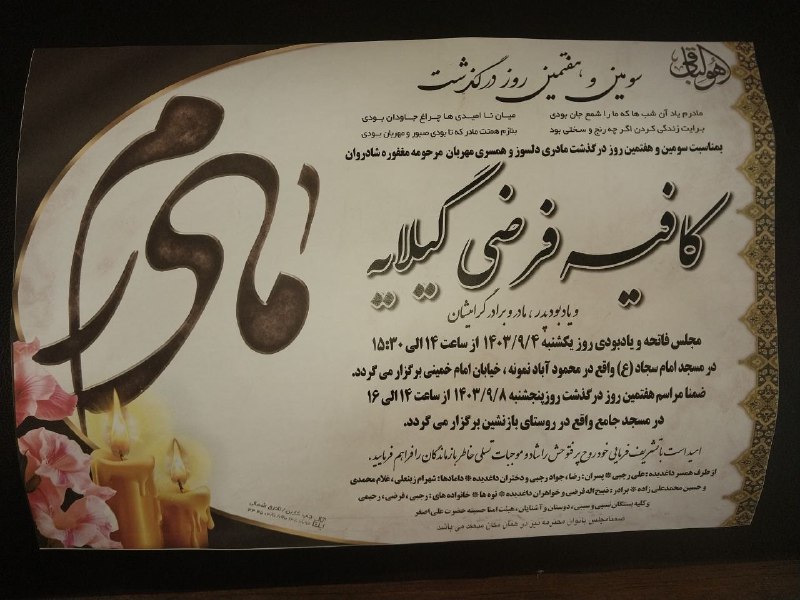 هو الباقی
سومین و هفتمین روز درگذشت
مادرم یاد آن شب ها که ما را شمع جان بودی    میان نا امیدی ها چراغ جاودان بودی
برایت زندگی کردن اگر چه رنج و سختی بود    بنازم همتت مادر که تا بودی صبور و مهربان بودی
بمناسبت سومین و هفتمین روز درگذشت مادری دلسوز و همسری مهربان مرحومه مغفوره شادروان
کافیه فرضی گیلایه
و یادبود پدر، مادر و برادر گرامیشان
مجلس فاتحه و یادبودی روز یکشنبه ۱۴۰۳/۹/۴ از ساعت ۱۴ الی ۱۵:۳۰
در مسجد امام سجاد (ع) واقع در محمود آباد نمونه ، خیابان امام خمینی برگزار می گردد.
ضمنا مراسم هفتمین روز درگذشت روز پنجشنبه ۱۴۰۳/۹/۸ از ساعت ۱۴ الی ۱۶
در مسجد جامع واقع در روستای بازنشین برگزار می گردد.
امید است با تشریف فرمایی خود روح پر فتوحش را شاد و موجبات تسلی خاطر بازماندگان را فراهم فرمایید.
از طرف همسر داغدیده : علی رجبی * پسران : رضا ، جواد رجبی و دختران داغدیده * دامادها : شهرام زینعلی ، غلام محمدی
و حسین محمدعلی زاده * برادر : ذبیح اله فرضی و خواهران داغدیده * نوه ها * خانواده های : رجبی ، فرضی ، رحیمی
و کلیه بستگان نسبی و سببی ، دوستان و آشنایان ، هیئت امنا حسینیه حضرت علی اصغر
ضمنا مجلس بانوان محترمه نیز در همان مکان منعقد می باشد
مادرم